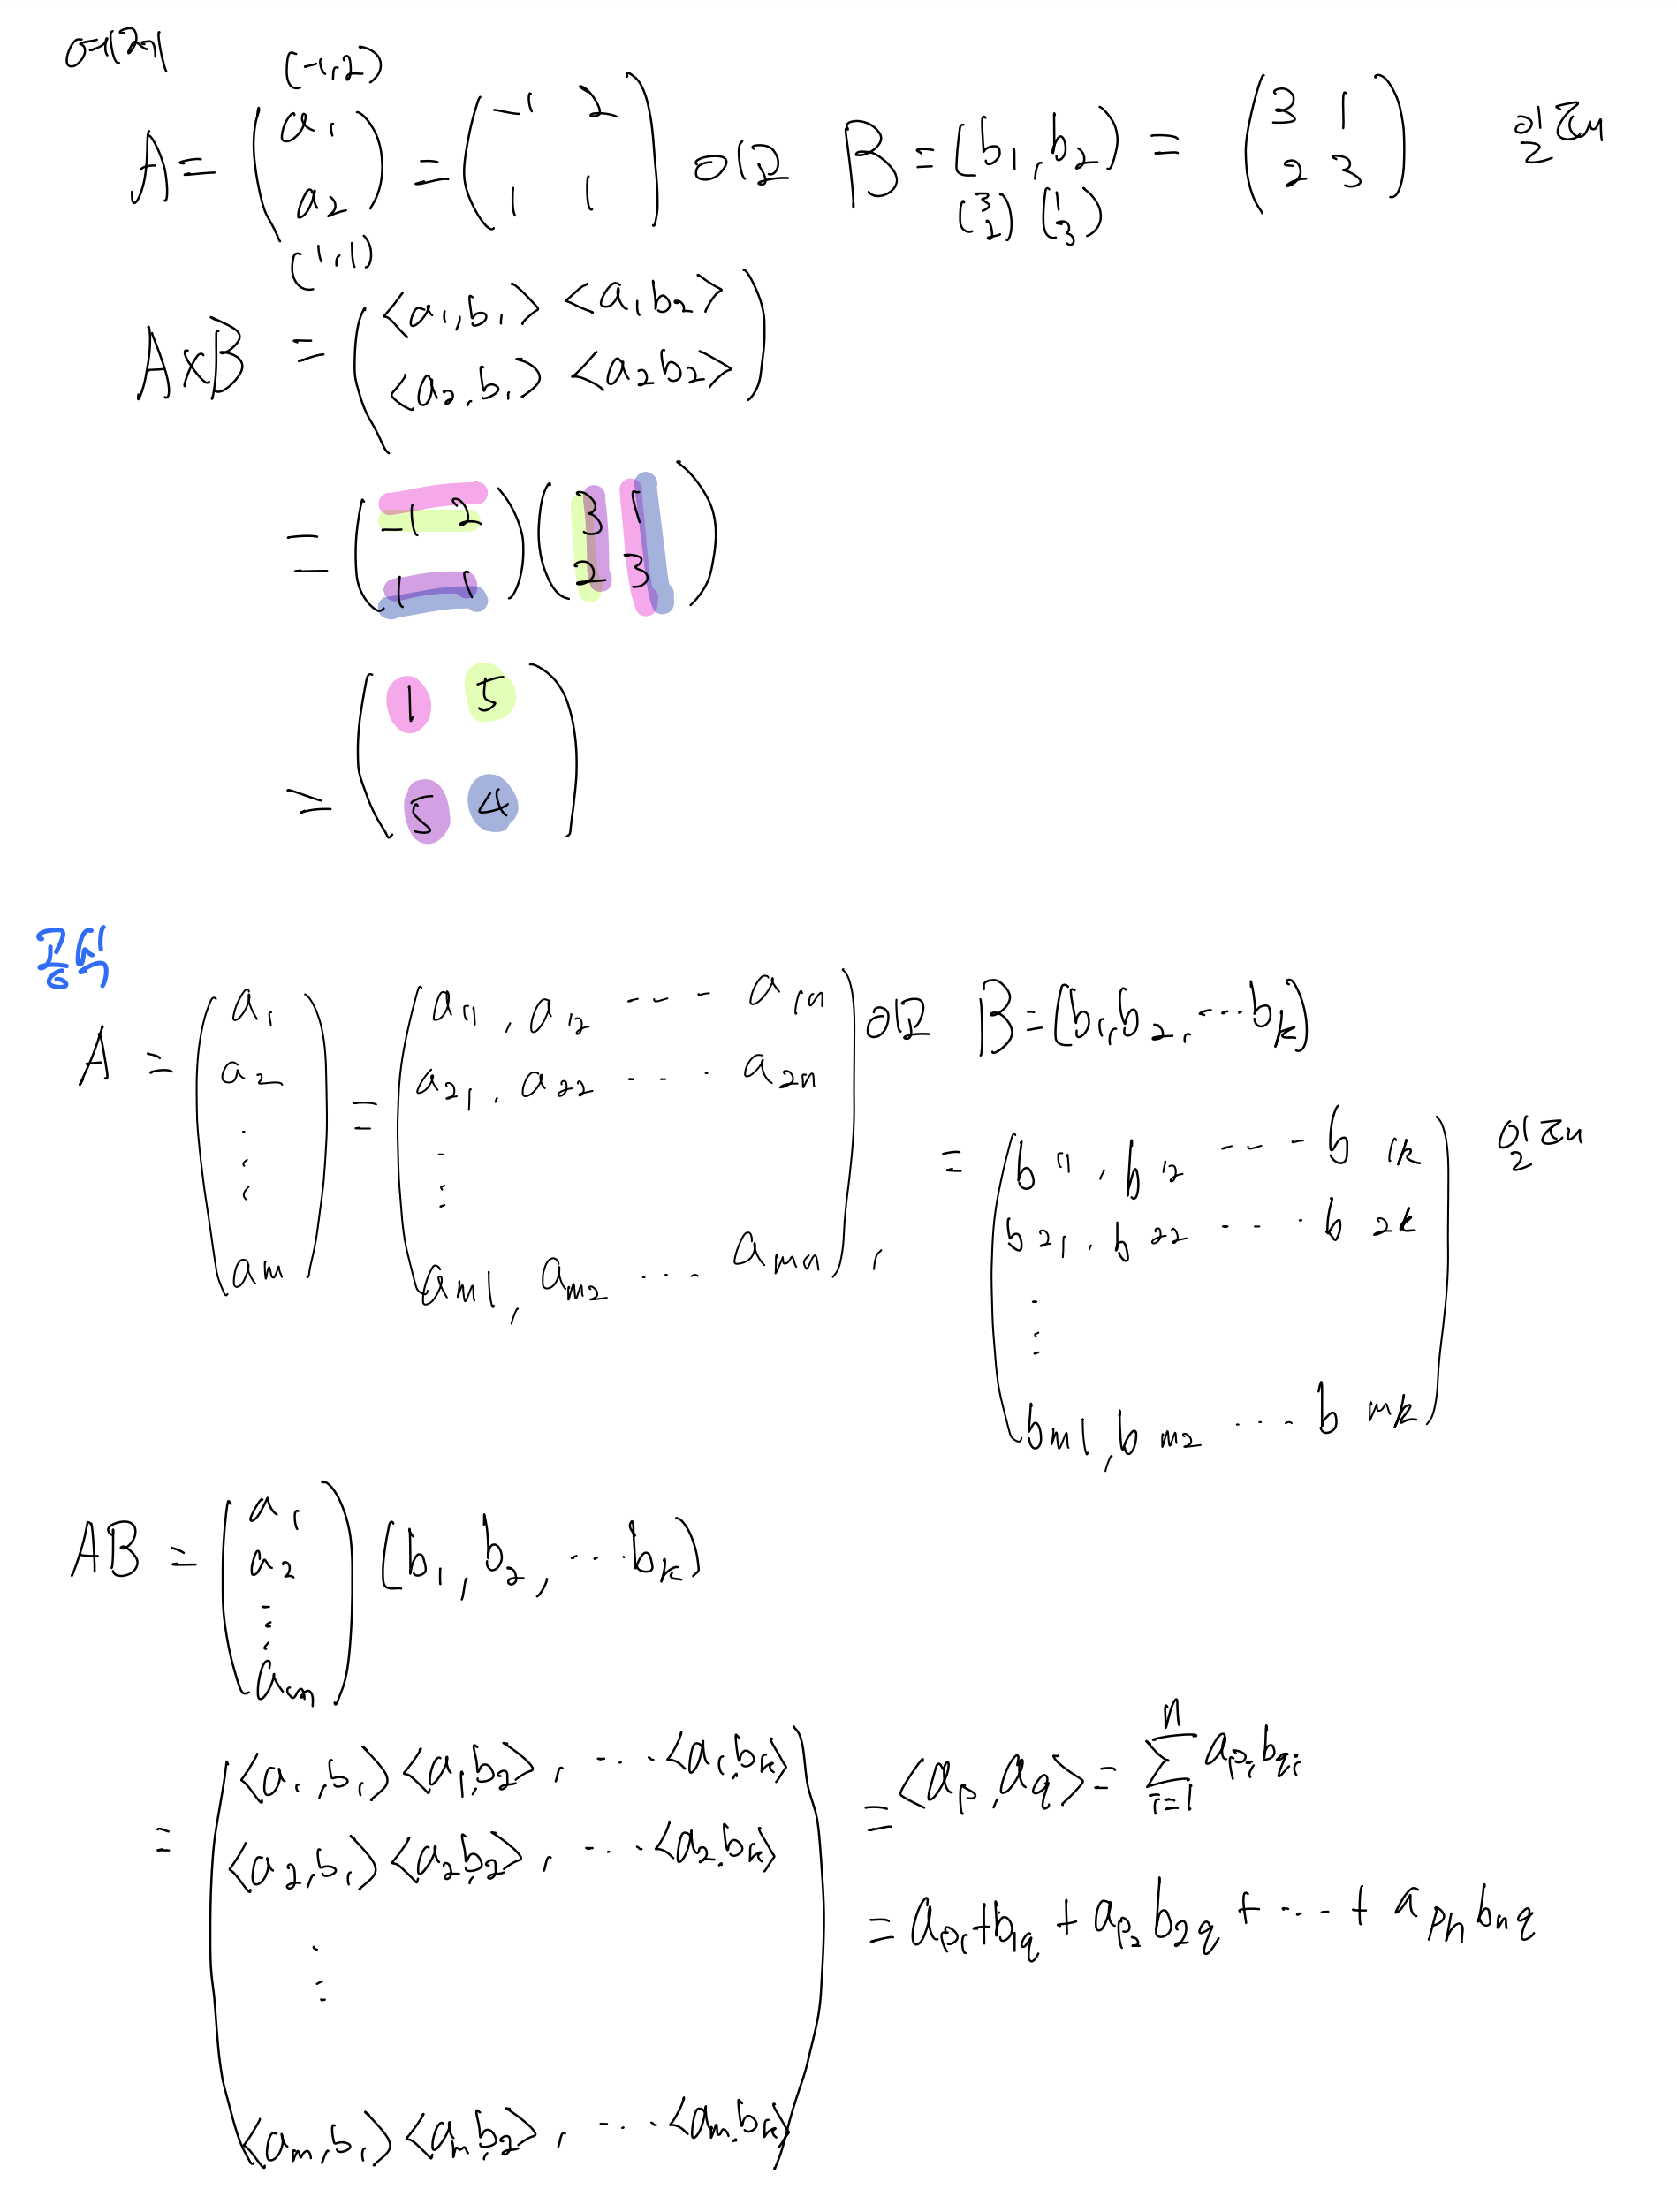 예제)
(-1,2)
A = ( a1 a2 ) = ( -1 2 1 1 ) 이고 B = (b1, b2) = ( 3 1 2 3 ) 일 때
(1,1) (3 2) (1 3)
A×B = ( <a1,b1> <a1,b2>
<a2,b1> <a2b2> )
= ( -1 2 1 1 ) ( 3 1 2 3 )
= ( 1 5
5 4 )
공식
A = ( a1 a2 ⋮ am ) = ( a11, a12 ---- a1n
a21, a22 --- · a2n
⋮
am1, am2 ··· amn ), 이고 B = (b1, b2, ···bk)
= ( b11, b12 ---- b1k
b21, b22 --- · b2k
⋮
bm1, bm2 ··· bmk ) 일 때
AB = ( a1 a2 ⋮ am ) (b1, b2, ···bk)
= ( <a1,b1> <a1,b2>, ···<a1,bk>
<a2,b1> <a2,b2>, ···<a2,bk>
⋮
<am,b1> <am,b2>, ···<am,bk> )
= <ap, aq> = Σ n i=1 api bqi
= ap1+b1q + ap2 b2q + ··· + apn bnq